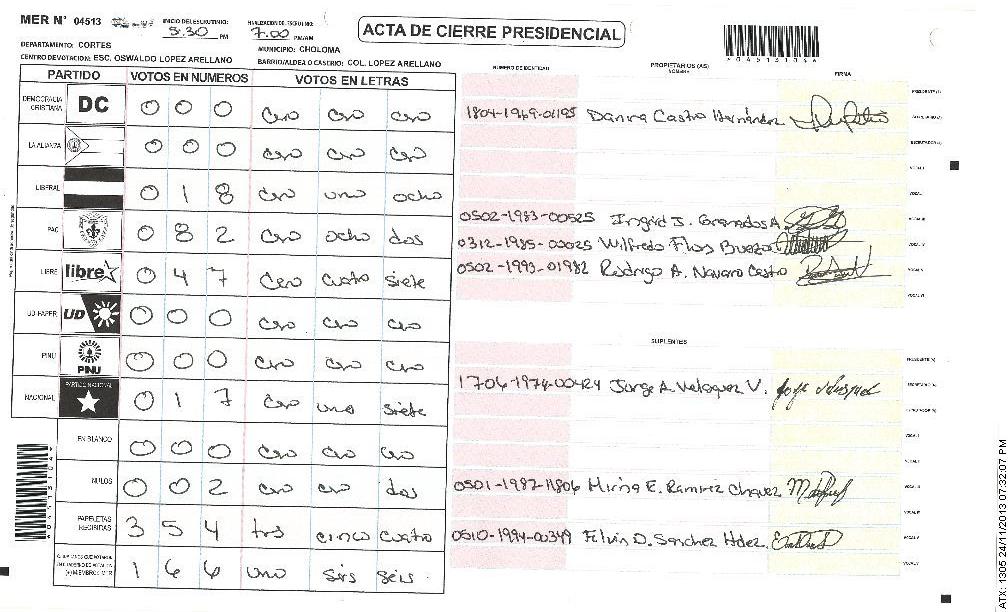 MER N° 04513
INICIO DEL ESCRUTINIO: 5:30 PM
FINALIZACION DEL ESCRUTINIO: 7:00 PM/AM
ACTA DE CIERRE PRESIDENCIAL
DEPARTAMENTO: CORTES
MUNICIPIO: CHOLOMA
CENTRO DE VOTACION: ESC. OSWALDO LOPEZ ARELLANO
BARRIO/ALDEA O CASERIO: COL. LOPEZ ARELLANO
PARTIDO VOTOS EN NUMEROS VOTOS EN LETRAS
DEMOCRACIA CRISTIANA DC 0 0 0 cero cero cero
LA ALIANZA 0 0 0 cero cero cero
LIBERAL 0 1 8 cero uno ocho
PAC 0 8 2 cero ocho dos
LIBRE libre 0 4 7 cero cuatro siete
UD-FAPER UD 0 0 0 cero cero cero
PINU PINU 0 0 0 cero cero cero
NACIONAL PARTIDO NACIONAL 0 1 7 cero uno siete
EN BLANCO 0 0 0 cero cero cero
NULOS 0 0 2 cero cero dos
PAPELETAS RECIBIDAS 3 5 4 tres cinco cuatro
(+) MIEMBROS MER 1 6 6 uno seis seis
NUMERO DE IDENTIDAD PROPIETARIOS (AS) NOMBRE FIRMA
1804-1969-01195 Danira Castro Hernández
0502-1983-00525 Ingrid J. Granados A.
0312-1985-00025 Wilfredo Flores
0502-1993-01982 Rodrigo A. Navarro Castro
SUPLENTES
1706-1974-00424 Jorge A. Velasquez V.
0501-1987-11806 Mirna E. Ramirez Chavez
0510-1994-00349 Elvin D. Sanchez Hdez.
ATX: 1305 24/11/2013 07:32:07 PM